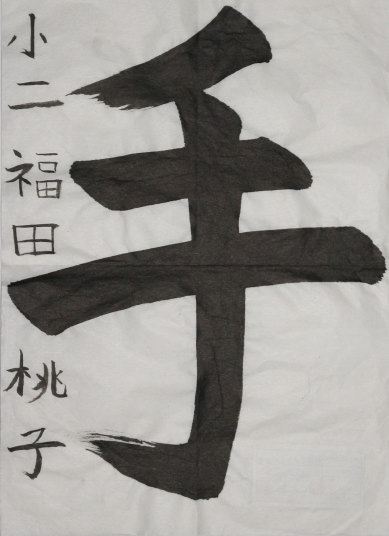 手
小二 福田 桃子